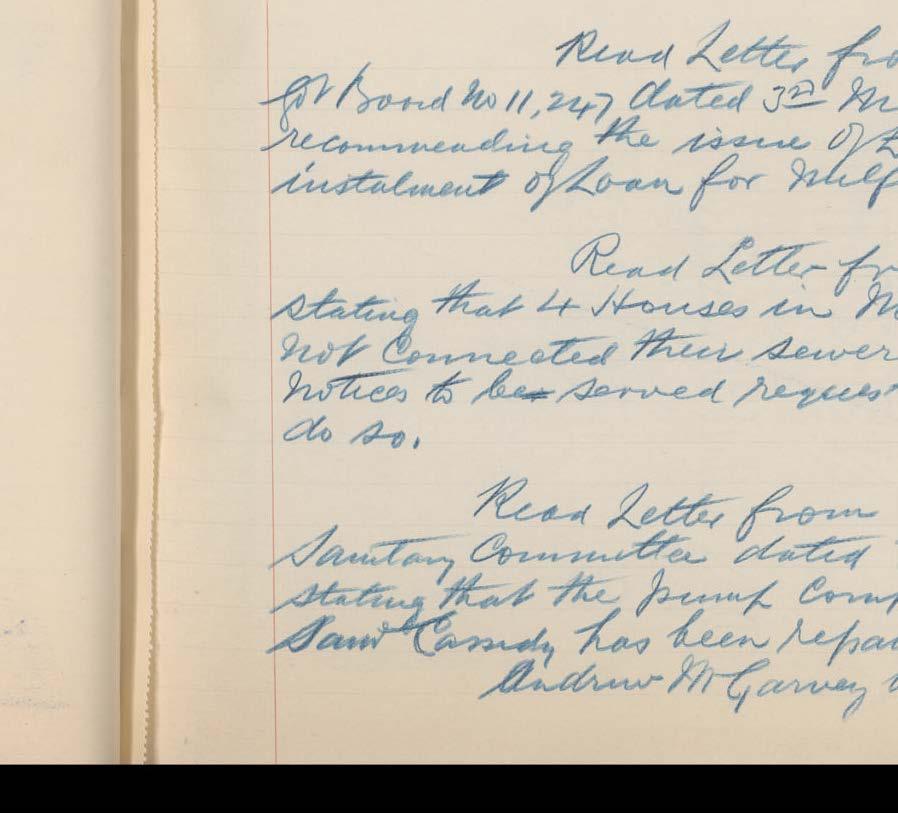 Read Letter fro
Govt Board No 11,247 dated 3rd M
recommending the issue of £
instalment of Loan for Milf
Read Letter fr
stating that 4 Houses in M
not Connected their sewer
Notices to be served request
do so.
Read Letter from
Sanitary Committee dated
stating that the pump comp
Saml Cassidy has been repai
Andrew McGarvey